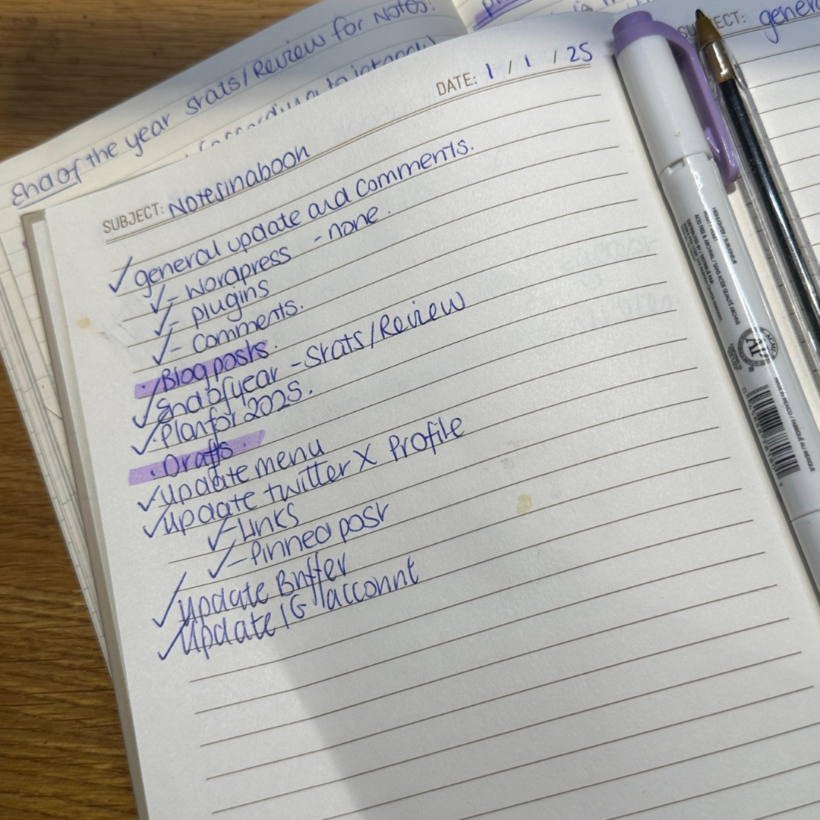 End of the year stats/Review for Notes.
DATE: 1 / 1 / 25
SUBJECT: Notesinabook
✓ general update and comments.
✓ - Wordpress - none.
✓ - plugins
✓ - Comments.
· Blog posts.
✓ · End of year - Stats/Review
✓ · Plan for 2025.
· Drafts.
✓ update menu
✓ update twitter X Profile
✓ - Links
✓ - Pinned post
✓ update Buffer
✓ update IG account
SUBJECT: genera
AP